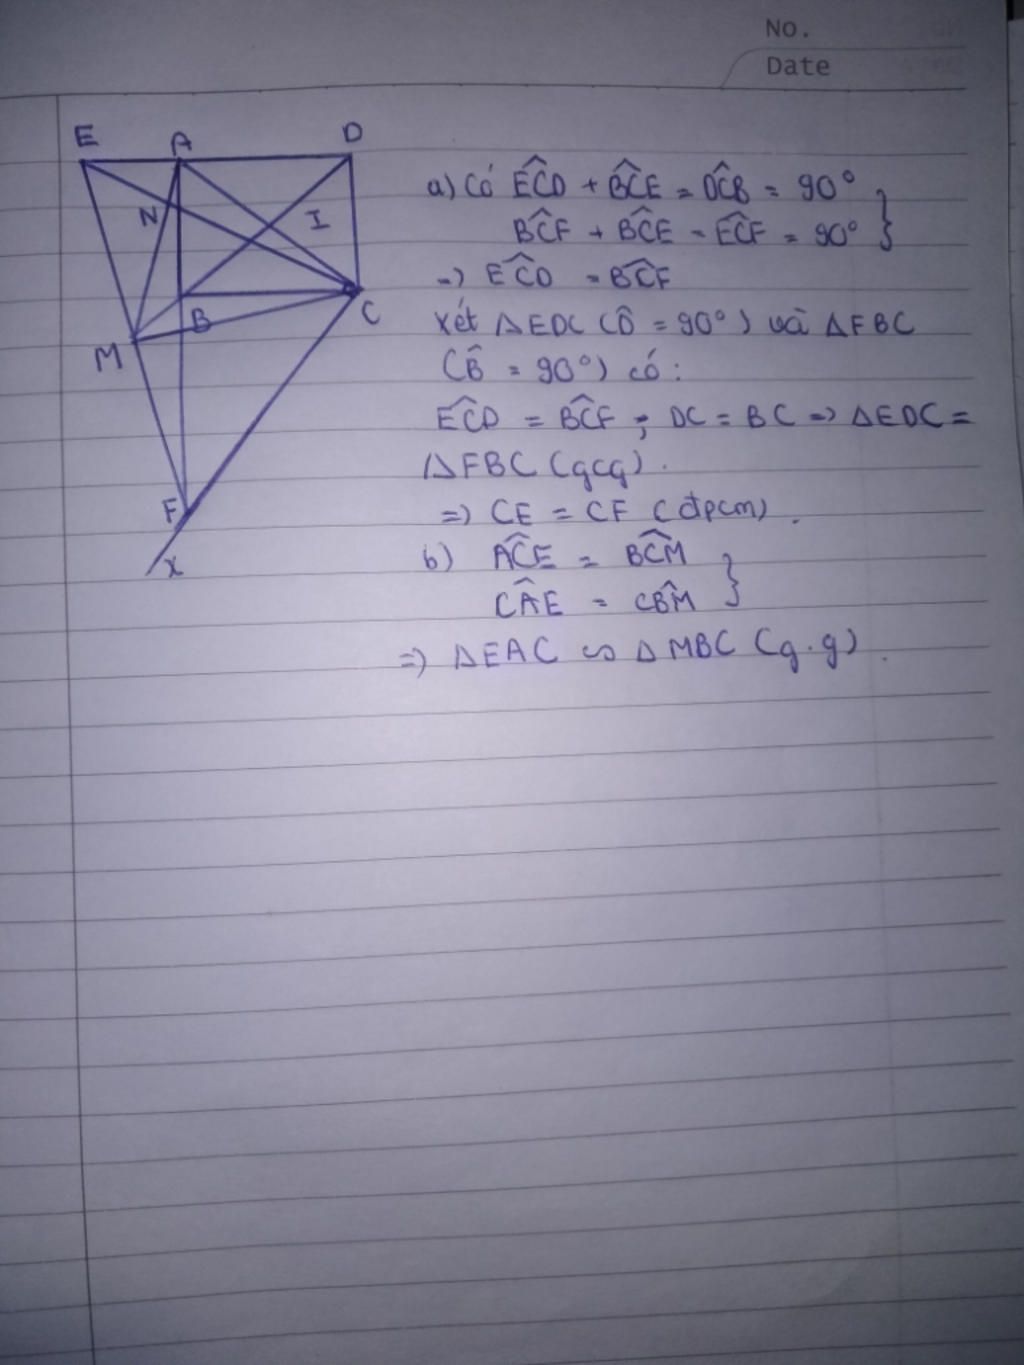 No.
Date
E A D
N I
B C
M
F
x
a) Có ÊCD + B̂CE = D̂CB = 90°
BĈF + BĈE = EĈF = 90°
=) EĈD = BĈF
Xét ΔEDC (D̂ = 90°) và ΔFBC
(B̂ = 90°) có:
EĈD = BĈF ; DC = BC => ΔEDC =
ΔFBC (gcg).
=) CE = CF (đpcm).
b) AĈE = BĈM
CÂE = CB̂M
=) ΔEAC ∽ ΔMBC (g.g).